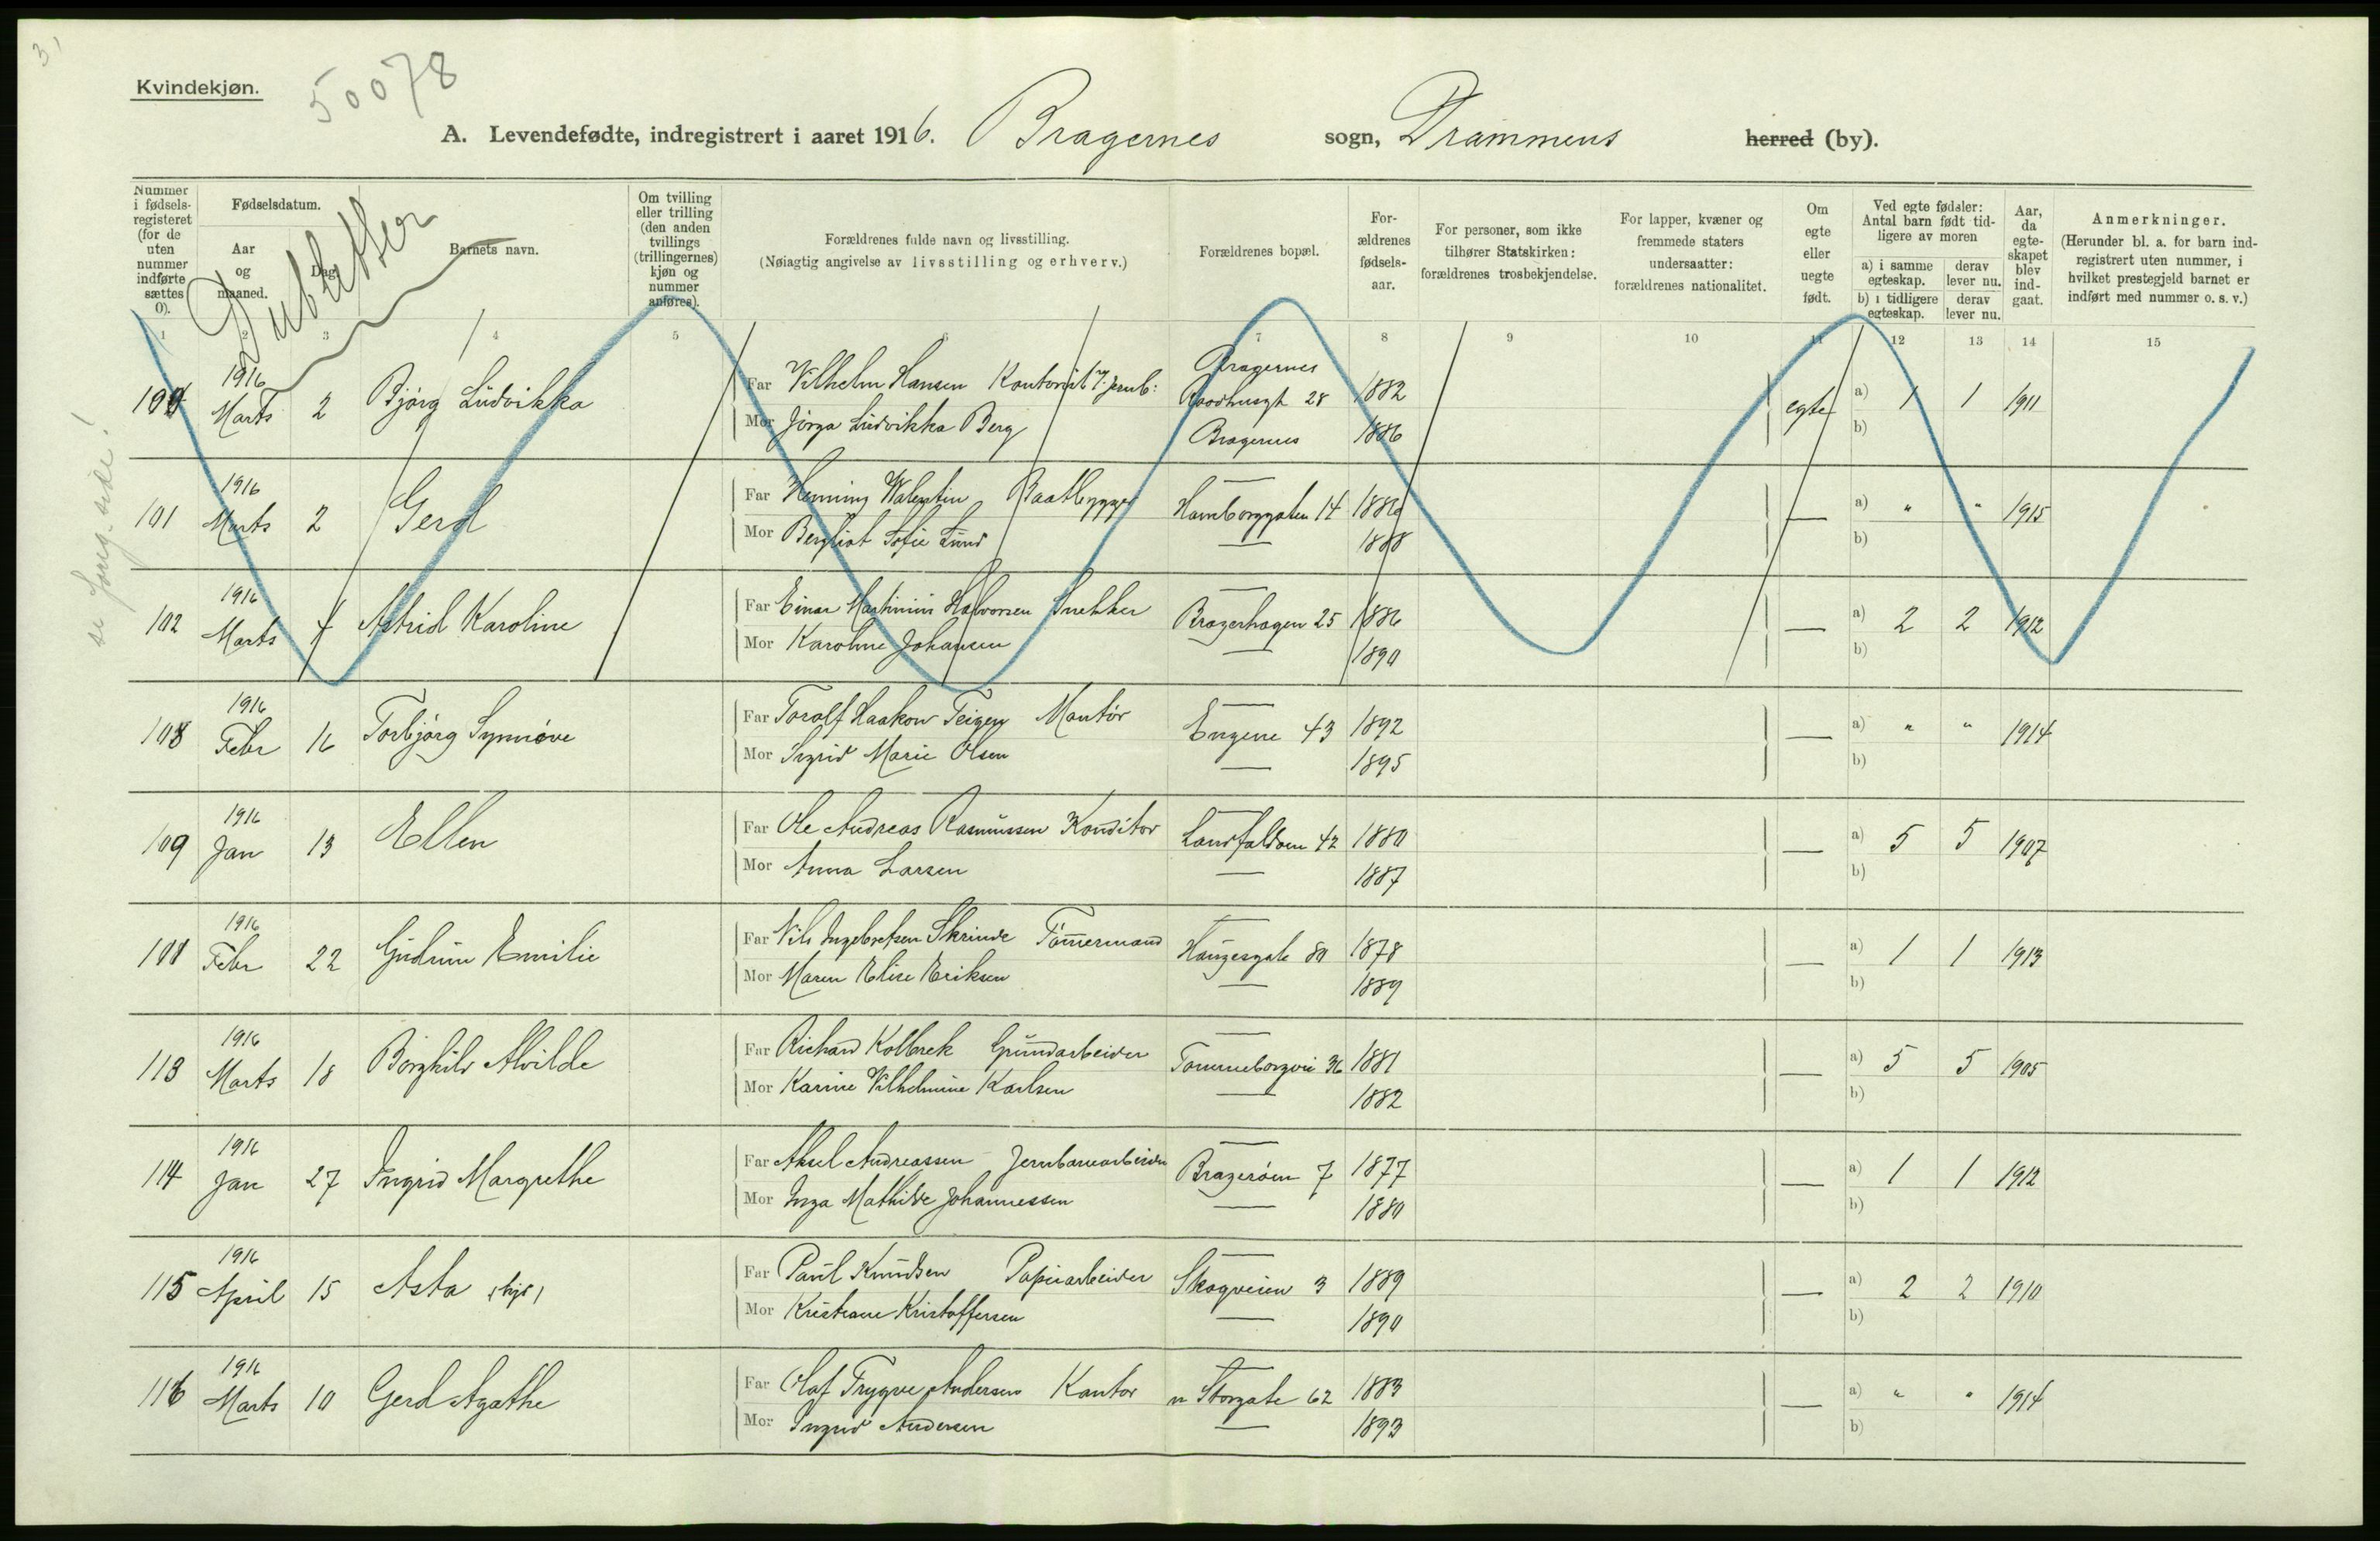 Kvindekjøn.
50078
A. Levendefødte, indregistrert i aaret 1916. Bragernes sogn, Drammens herred (by).
Nummer i fødselsregisteret (for de uten nummer indførte sættes 0).
Fødselsdatum.
Aar og maaned.
Dag.
Barnets navn.
Om tvilling eller trilling (den anden tvillings (trillingernes) kjøn og nummer anføres).
Forældrenes fulde navn og livsstilling.
(Nøiagtig angivelse av livsstilling og erhverv.)
Forældrenes bopæl.
Forældrenes fødselsaar.
For personer, som ikke tilhører Statskirken: forældrenes trosbekjendelse.
For lapper, kvæner og fremmede staters undersaatter: forældrenes nationalitet.
Om egte eller uegte født.
Ved egte fødsler: Antal barn født tidligere av moren
a) i samme egteskap.
derav lever nu.
b) i tidligere egteskap.
derav lever nu.
Aar, da egteskapet blev indgaat.
Anmerkninger.
(Herunder bl. a. for barn indregistrert uten nummer, i hvilket prestegjeld barnet er indført med nummer o. s. v.)
Dubletter
se forrg. side!
1 2 3 4 5 6 7 8 9 10 11 12 13 14 15
100 1916 Marts 2 Bjørg Ludvikka
Far Vilhelm Hansen Kontorist v. jernb: Bragernes Raadhusgt 28 1882 egte a) 1 1 1911
Mor Jörga Ludvikka Berg Bragernes 1886 b)
101 1916 Marts 2 Gerd
Far Henning Walentin Baatbygger Hamborggaten 14 1886 — a) " " 1915
Mor Bergliot Sofie Lund — 1888 b)
102 1916 Marts 4 Astrid Karoline
Far Einar Martinius Halvorsen Snekker Bragerhagen 25 1886 — a) 2 2 1912
Mor Karoline Johansen — 1890 b)
108 1916 Febr 16 Torbjørg Synnöve
Far Toralf Haakon Teigen Montør Engene 43 1892 — a) " " 1914
Mor Ingrid Marie Olsen — 1895 b)
109 1916 Jan 13 Ellen
Far Ole Andreas Rasmussen Konditor Landfaldöen 42 1880 — a) 5 5 1907
Mor Anna Larsen — 1887 b)
1916 Febr 22 Gudrun Emilie
Far Nils Ingebretsen Skrinde Tömmermand Haugesgate 80 1878 — a) 1 1 1913
Mor Maren Elise Eriksen — 1889 b)
113 1916 Marts 18 Borghild Alvilde
Far Richard Kolbrek Grundarbeider 36 1881 — a) 5 5 1905
Mor Karine Vilhelmine Karlsen — 1882 b)
114 1916 Jan 27 Ingrid Margrethe
Far Aksel Andreassen Jernbanearbeider Bragerøen 7 1877 — a) 1 1 1912
Mor Inga Mathilde Johannessen — 1880 b)
115 1916 April 15 Asta
Far Paul Knudsen Papirarbeider Skogveien 3 1889 — a) 2 2 1910
Mor Kristiane Kristoffersen — 1890 b)
116 1916 Marts 10 Gerd Agathe
Far Olaf Trygve Andersen Kantor n Storgate 62 1883 — a) " " 1914
Mor Ingrid Andersen — 1893 b)